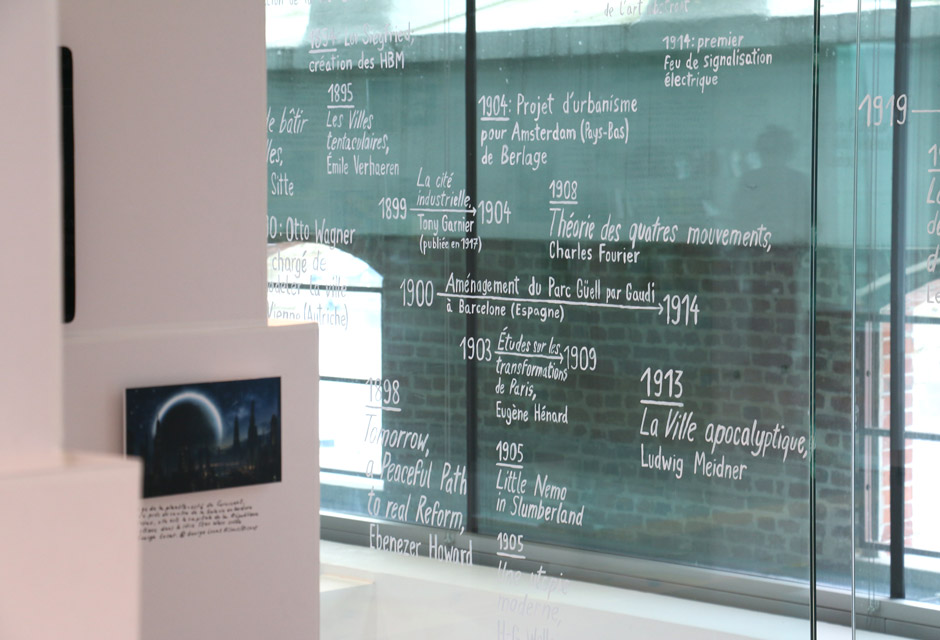 de l'art
création des HBM
1914: premier
Feu de signalisation
électrique
1895
Les Villes
tentaculaires,
Émile Verhaeren
1904: Projet d'urbanisme
pour Amsterdam (Pays-Bas)
de Berlage
1919
bâtir
Sitte
La cité
industrielle,
1899
1904
Tony Garnier
(publiée en 1917)
1908
Théorie des quatres mouvements,
Charles Fourier
Otto Wagner
chargé de
la ville
Vienne (Autriche)
1900
Aménagement du Parc Güell par Gaudi
1914
à Barcelone (Espagne)
1903
Études sur les
1909
transformations
de Paris,
Eugène Hénard
1898
Tomorrow,
a Peaceful Path
to real Reform,
Ebenezer Howard
1913
La Ville apocalyptique,
Ludwig Meidner
1905
Little Nemo
in Slumberland
1905
Une utopie
moderne